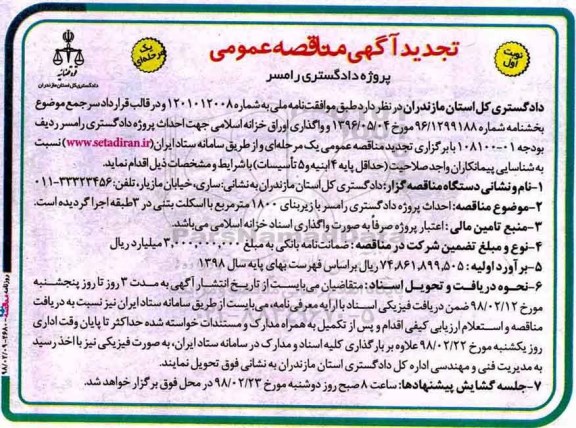 تجدید آگهی مناقصه عمومی
پروژه دادگستری رامسر
نوبت اول
یک مرحله‌ای
قوه قضائیه
دادگستری کل استان مازندران
دادگستری کل استان مازندران در نظر دارد طبق موافقت‌نامه ملی به شماره ۱۲۰۱۰۱۲۰۰۸ و در قالب قرارداد سرجمع موضوع
بخشنامه شماره ۹۶/۱۲۹۹۱۸۸ مورخ ۱۳۹۶/۰۵/۰۴ و واگذاری اوراق خزانه اسلامی جهت احداث پروژه دادگستری رامسر ردیف
بودجه ۰۱-۱۰۸۱۰۰ با برگزاری تجدید مناقصه عمومی یک مرحله‌ای و از طریق سامانه ستاد ایران (www.setadiran.ir) نسبت
به شناسایی پیمانکاران واجد صلاحیت (حداقل پایه ۴ ابنیه و ۵ تأسیسات) با شرایط و مشخصات ذیل اقدام نماید.
۱-نام و نشانی دستگاه مناقصه گزار: دادگستری کل استان مازندران به نشانی: ساری، خیابان مازیار، تلفن: ۳۳۳۲۳۴۵۶-۰۱۱
۲-موضوع مناقصه: احداث پروژه دادگستری رامسر با زیربنای ۱۸۰۰ مترمربع با اسکلت بتنی در ۳ طبقه اجرا گردیده است.
۳-منبع تامین مالی: اعتبار پروژه صرفاً به صورت واگذاری اسناد خزانه اسلامی می‌باشد.
۴-نوع و مبلغ تضمین شرکت در مناقصه: ضمانت‌نامه بانکی به مبلغ ۳,۰۰۰,۰۰۰,۰۰۰ میلیارد ریال
۵-برآورد اولیه: ۷۴,۸۶۱,۸۹۹,۵۰۵ ریال براساس فهرست بهای پایه سال ۱۳۹۸
۶-نحوه دریافت و تحویل اسناد: متقاضیان می‌بایست از تاریخ انتشار آگهی به مدت ۳ روز تا روز پنجشنبه
مورخ ۹۸/۰۲/۱۲ ضمن دریافت فیزیکی اسناد با ارایه معرفی‌نامه، می‌بایست از طریق سامانه ستاد ایران نیز نسبت به دریافت
مناقصه و استعلام ارزیابی کیفی اقدام و پس از تکمیل به همراه مدارک و مستندات خواسته شده حداکثر تا پایان وقت اداری
روز یکشنبه مورخ ۹۸/۰۲/۲۲ علاوه بر بارگذاری کلیه اسناد و مدارک در سامانه ستاد ایران، به صورت فیزیکی نیز با اخذ رسید
به مدیریت فنی و مهندسی اداره کل دادگستری استان مازندران به نشانی فوق تحویل نمایند.
۷-جلسه گشایش پیشنهادها: ساعت ۸ صبح روز دوشنبه مورخ ۹۸/۰۲/۲۳ در محل فوق برگزار خواهد شد.